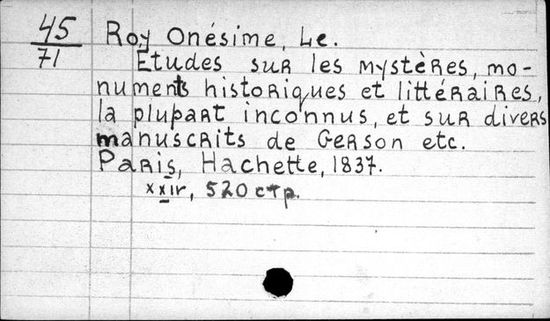 45
71
Roy Onésime, Le.
Etudes sur les mystères, mo-
numents historiques et littéraires,
la plupart inconnus, et sur divers
manuscrits de Gerson etc.
Paris, Hachette, 1837.
xxiv, 520 стр.